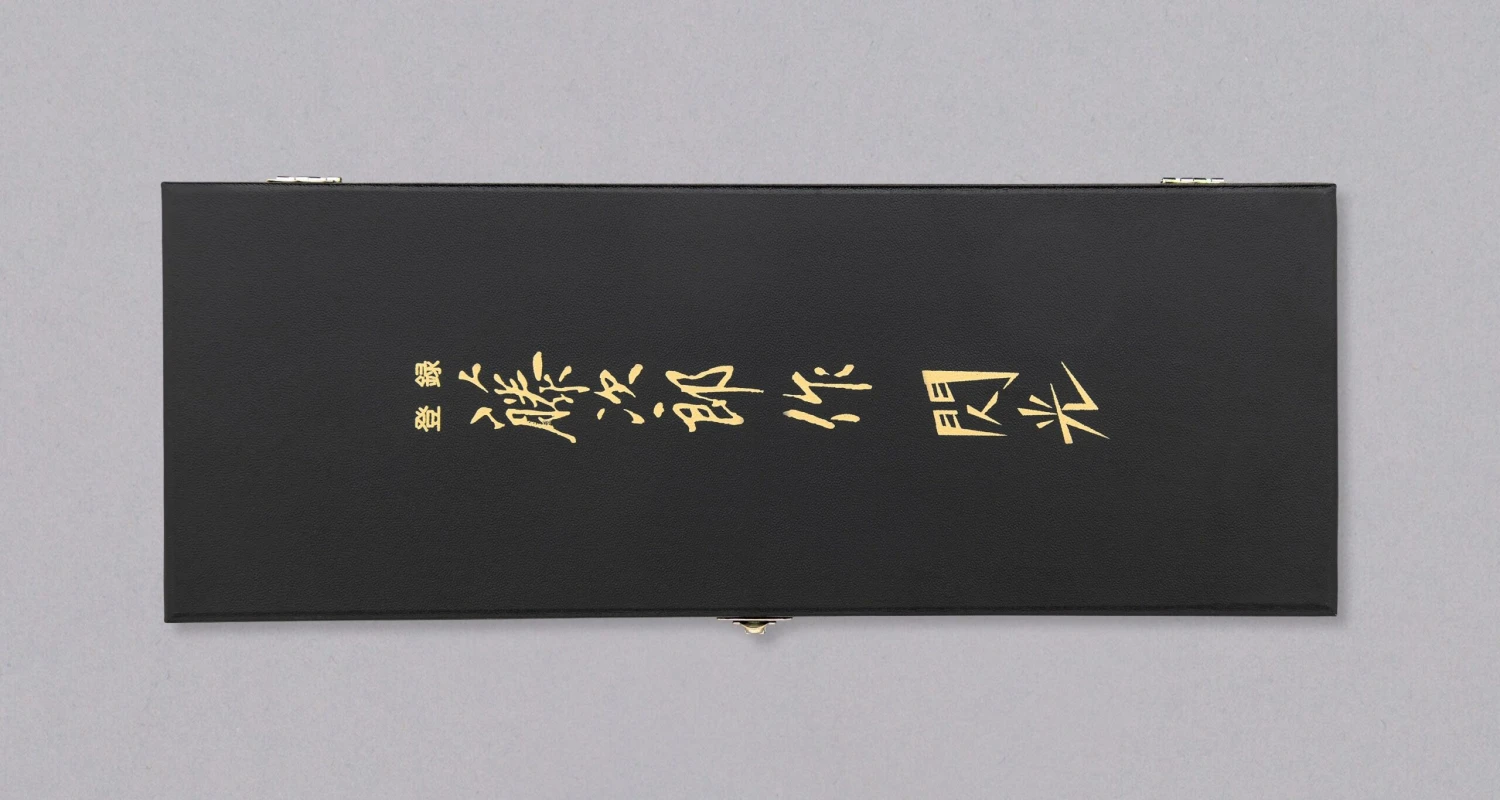 登録
藤次郎作 閃光